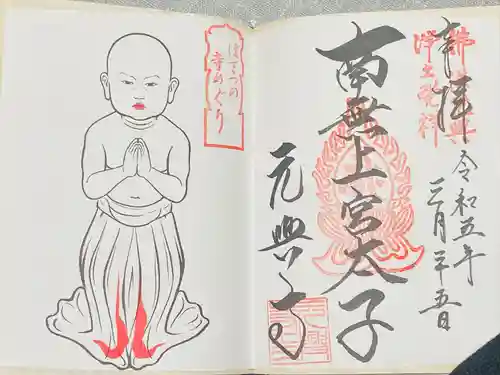 奉拝
佛法元興
浄土発祥
令和五年
三月二十五日
南無上宮太子
元興寺
寺めぐり